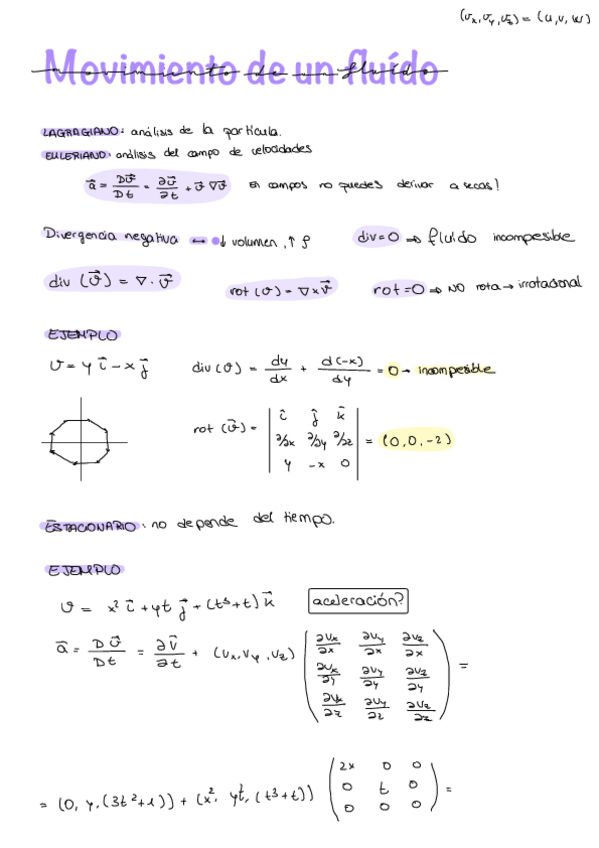 (υx, υy, υz) = (u, v, w)
Movimiento de un fluído
LAGRAGIANO: análisis de la partícula.
EULERIANO: análisis del campo de velocidades
a⃗ = Dυ⃗/Dt = ∂υ⃗/∂t + υ⃗ ∇υ⃗ En campos no puedes derivar a secas!
Divergencia negativa ↔ ↓ volumen, ↑ ρ div=0 ⇒ fluido incompesible
div (υ⃗) = ∇ · υ⃗ rot (υ) = ∇ x υ⃗ rot =0 ⇒ NO rota → irrotacional
EJEMPLO
υ = y i⃗ − x j⃗ div (υ) = dy/dx + d(-x)/dy = 0 → incompesible
rot (υ⃗) = | i⃗ j⃗ k⃗ |
| ∂/∂x ∂/∂y ∂/∂z | = (0,0,-2)
| y -x 0 |
ESTACIONARIO: no depende del tiempo.
EJEMPLO
υ = x² i⃗ + yt j⃗ + (t³+t) k⃗ aceleración?
a⃗ = Dυ⃗/Dt = ∂v⃗/∂t + (υx, υy, υz) ( ∂υx/∂x ∂υy/∂x ∂υz/∂x
∂υx/∂y ∂υy/∂y ∂υz/∂y
∂υx/∂z ∂υy/∂z ∂υz/∂z ) =
= (0, y, (3t²+1)) + (x², yt, (t³+t)) ( 2x 0 0
0 t 0
0 0 0 ) =